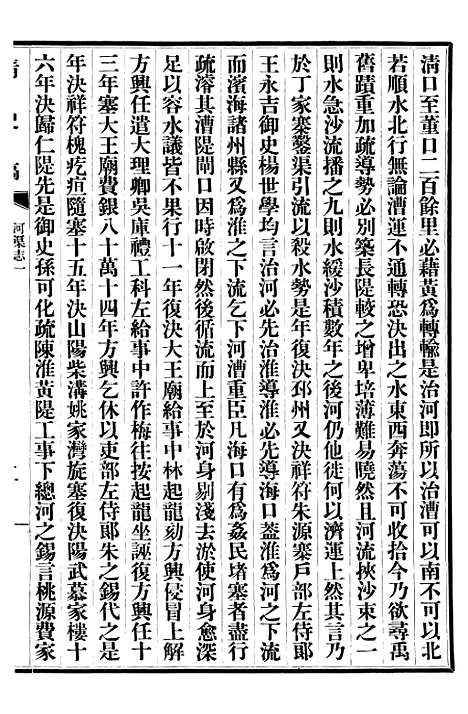 清口至董口二百餘里必藉黃爲轉輸是治河卽所以治漕可以南不可以北
若順水北行無論漕運不通轉恐決出之水東西奔蕩不可收拾今乃欲尋禹
舊蹟重加疏導勢必別築長隄較之增卑培薄難易曉然且河流挾沙束之一
則水急沙流播之九則水緩沙積數年之後河仍他徙何以濟運上然其言乃
於丁家寨鑿渠引流以殺水勢是年復決邳州又決祥符朱源寨戶部左侍郞
王永吉御史楊世學均言治河必先治淮導淮必先導海口蓋淮爲河之下流
而濱海諸州縣又爲淮之下流乞下河漕重臣凡海口有爲姦民堵塞者盡行
疏濬其漕隄閘口因時啟閉然後循流而上至於河身剔淺去淤使河身愈深
足以容水議皆不果行十一年復決大王廟給事中林起龍劾方興侵冒上解
方興任遣大理卿吳庫禮工科左給事中許作梅往按起龍坐誣復方興任十
三年塞大王廟費銀八十萬十四年方興乞休以吏部左侍郞朱之錫代之是
年決祥符槐疙疸隨塞十五年決山陽柴溝姚家灣旋塞復決陽武慕家樓十
六年決歸仁隄先是御史孫可化疏陳淮黃隄工事下總河之錫言桃源費家
清史稿
河渠志一